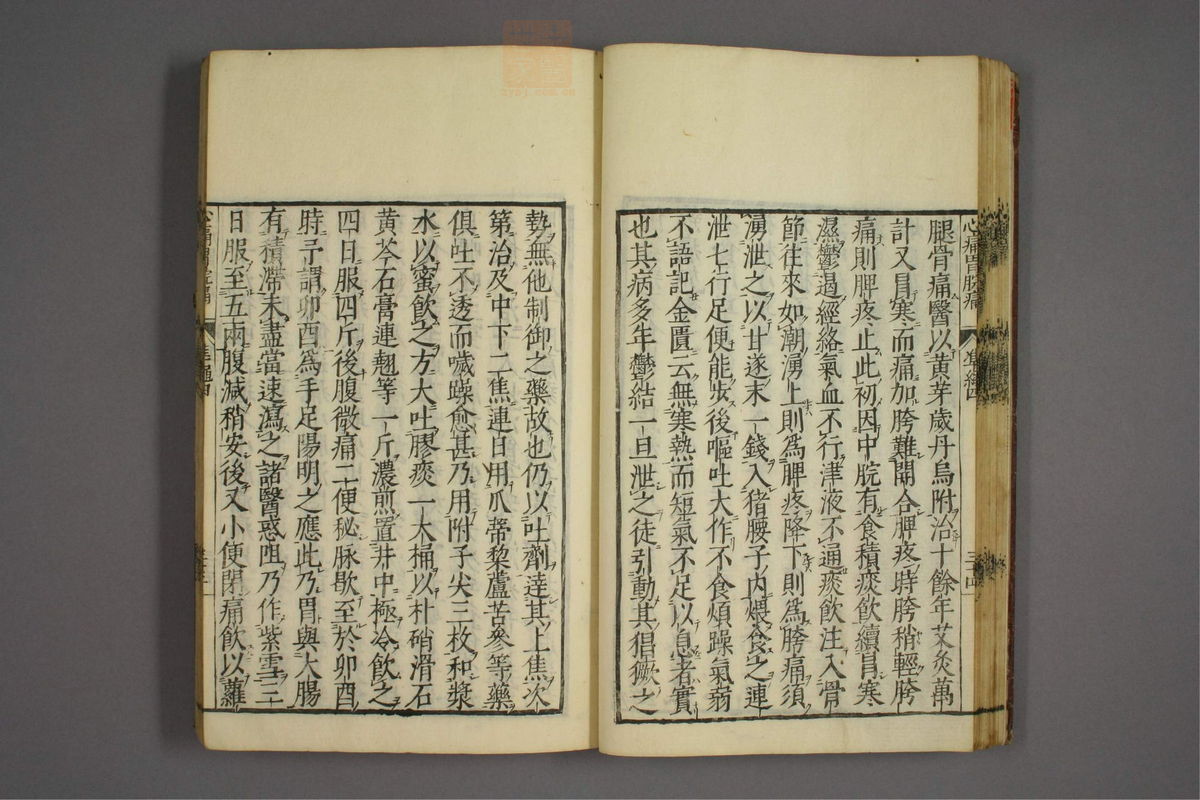 心痛胃脘痛
準繩四
三十四
腿骨痛醫以黃芽歲丹烏附治十餘年艾灸萬
計又冒寒而痛加胯難開合脾疼時胯稍輕胯
痛則脾疼止此初因中脘有食積痰飲續冒寒
濕鬱遏經絡氣血不行津液不通痰飲注入骨
節往來如潮湧上則爲脾疼降下則爲胯痛須
湧泄之以甘遂末一錢入猪腰子內煨食之連
泄七行足便能步後嘔吐大作不食煩躁氣弱
不語記金匱云無寒熱而短氣不足以息者實
也其病多年鬱結一旦泄之徒引動其猖獗之
勢無他制御之藥故也仍以吐劑達其上焦次
第治及中下二焦連日用瓜蒂藜蘆苦參等藥
俱吐不透而噦躁愈甚乃用附子尖三枚和漿
水以蜜飲之方大吐膠痰一大桶以朴硝滑石
黃芩石膏連翹等一斤濃煎置井中極冷飲之
四日服四斤後腹微痛二便秘脉歇至於卯酉
時予謂卯酉爲手足陽明之應此乃胃與大腸
有積滯未盡當速瀉之諸醫惑阻乃作紫雪三
日服至五兩腹減稍安後又小便閉痛飲以蘿